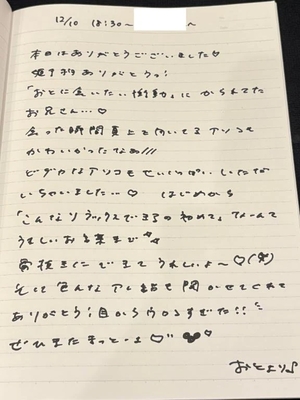 12/10 18:30〜 〜
本日はありがとうございました♡
ありがとうっ!
「おとに会いたい衝動」にかられてた
お兄さん…♡
会った瞬間真上を向いてるアソコ
かわいかったなぁ///
アソコをせいいっぱい
いちゃいました…♡ はじめから
「こんなリラックスできるの初めて」なーんて
うれしいお言葉まで
できてうれしいよ〜♡
そして色んな 聞かせてくれて
ありがとう! 目からウロコすぎた!!
ぜひまたまってるよ♡
おとより♪